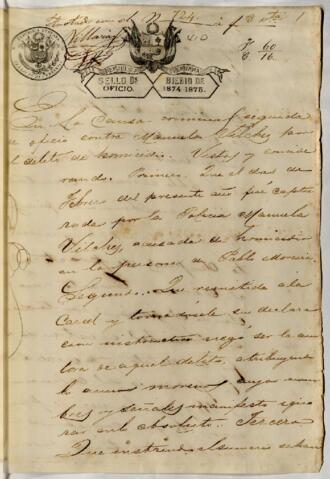 1
60
16
SELLO DE OFICIO.
BIENIO DE 1874-1875.
En la Causa criminal seguida
de oficio contra Manuela Vilches por
el delito de homicidio. Vistos y conside
rando. Primero. Que el dies de
Febrero del presente año fué captu
rada por la Policia Manuela
Vilches, acusada de homicidio
en la persona de Pablo
Segundo. Que remitida a la
Carcel y tomadosele su declara
cion instructiva negó ser la au
tora de aquel delito, atribuyen
á unos morenos cuyos nom
bres y señales manifestó igno
rar en lo absoluto. Tercero
Que instruido el sumario